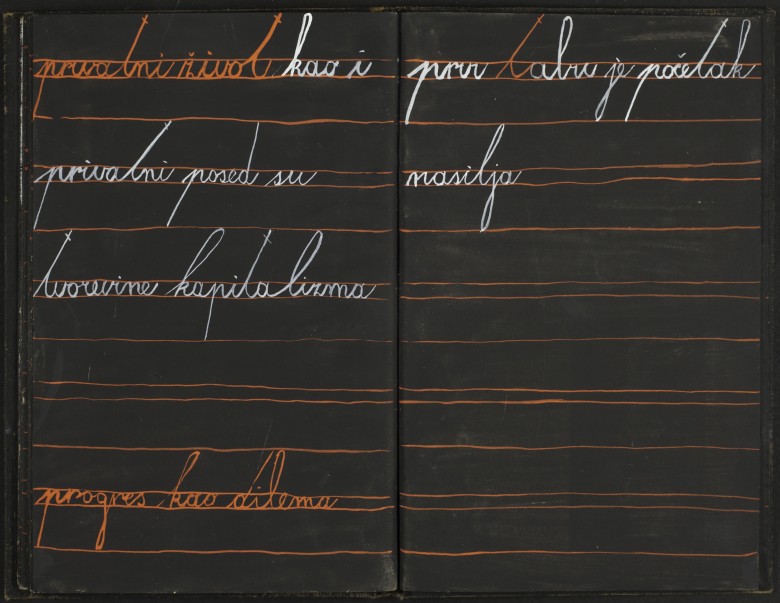 privatni život kao i
privatni posed su
tvorevine kapitalizma
progres kao dilema
prvi tabu je početak
nasilja